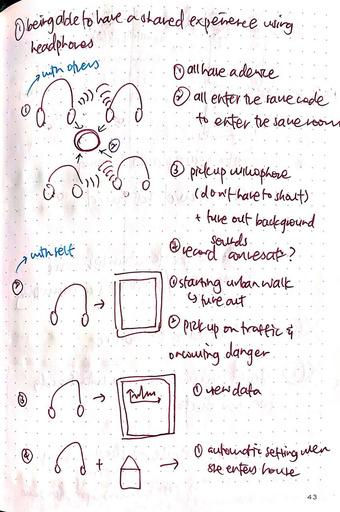 ① being able to have a shared experience using
headphones
with others
① all have a device
② all enter the same code
to enter the same room
①
②
③ pick up microphone
(don't have to shout)
+ tune out background
sounds
④ record conversate?
with self
② 
① starting urban walk
↳ tune out
② pick up on traffic &
oncoming danger
③
① view data
④
+
① automatic setting when
she enters house
43